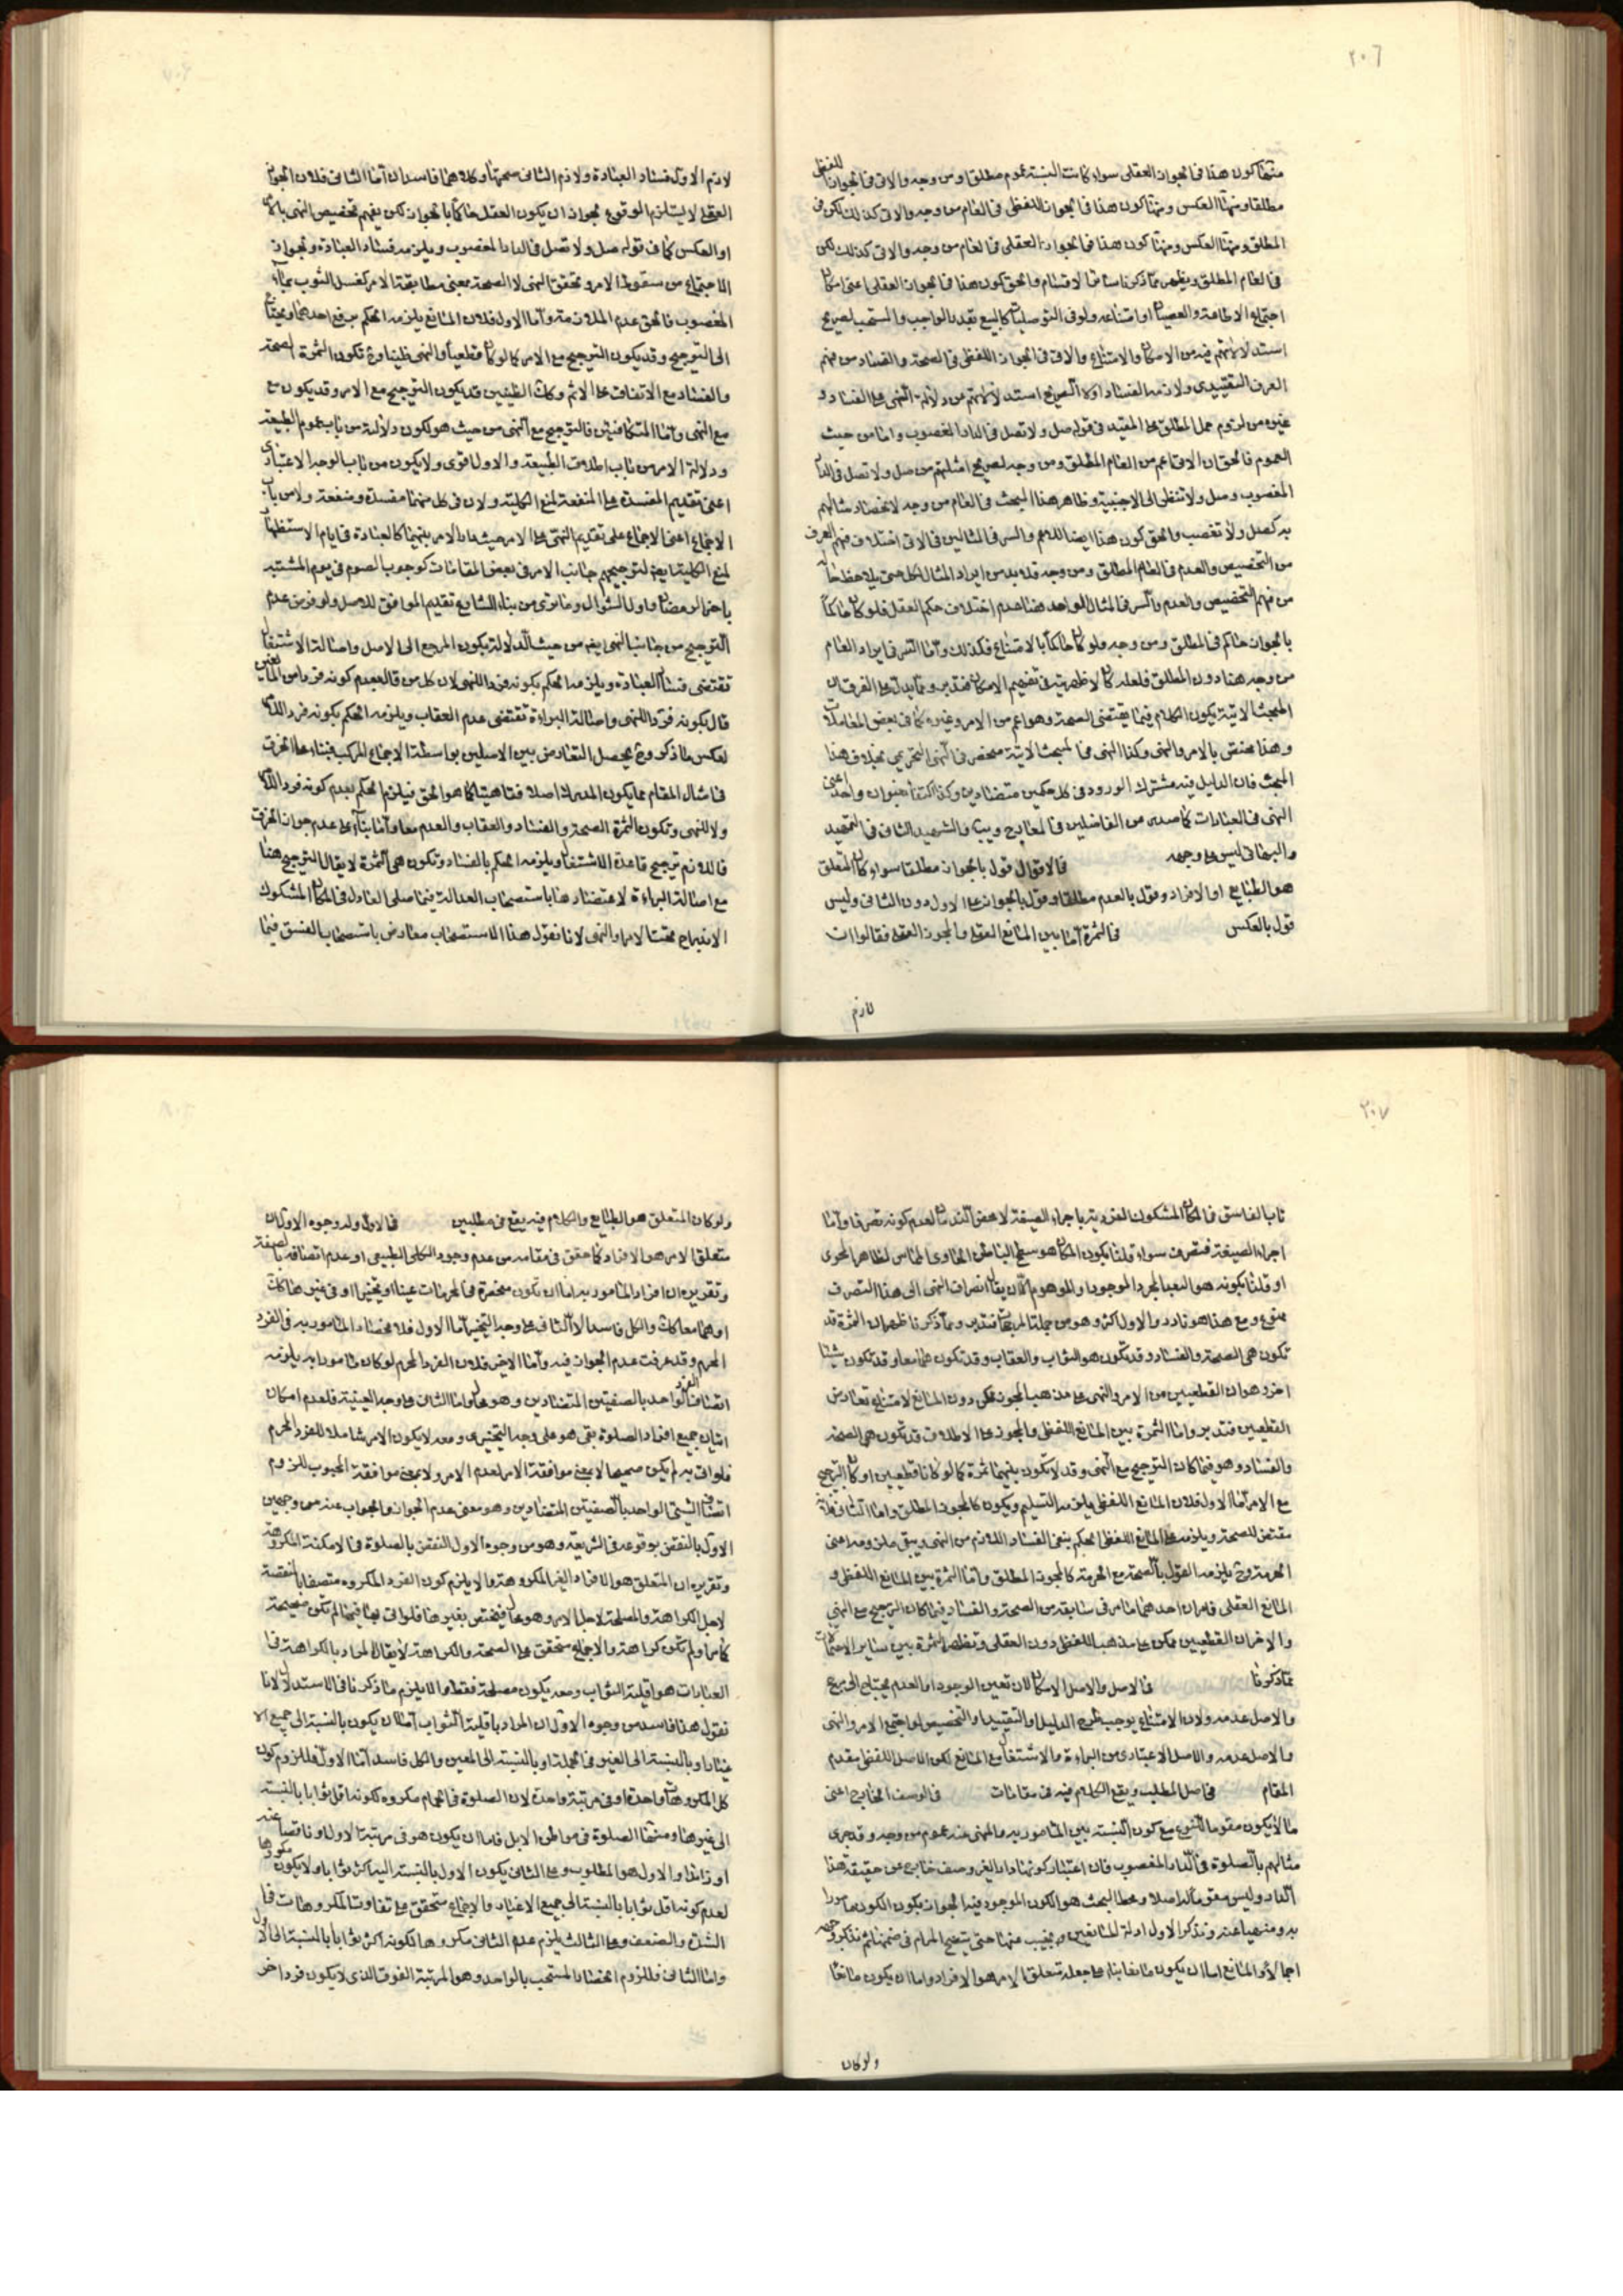 ٢٠٦
منها كون هذا فى الجواز العقلى سواء كانت النسبة عموم مطلق او من وجه والاتى فى الجواز اللفظى
مطلقا ومنها العكس ومنها كون هذا فى الجواز اللفظى فى العام من وجه والاتى كذلك لكن فى
المطلق ومنها العكس ومنها كون هذا فى الجواز العقلى فى العام من وجه والاتى كذلك لكن
فى العام المطلق ويظهر مما ذكرنا سائر الاقسام والحق كون هذا فى الجواز العقلى اعنى امكان
اجتماع الاطاعة والعصيان او امتناعه ولو فى التوصليات كالبيع بقيد الواجب والمستحب لصريح
استدلالاتهم فيه من الامكان والامتناع والاتى فى الجواز اللفظى فى الصحة والفساد من فهم
العرف التقييدى ولازمه الفساد او لا لصريح استدلالاتهم من دلالة النهى على الفساد و
غيره من لزوم حمل المطلق على المقيد فى قوله صل ولا تصل فى الدار المغصوب واما من حيث
العموم فالحق ان الاتى اعم من العام المطلق ومن وجه لصريح امثلتهم من صل ولا تصل فى الدار
المغصوب وصل ولا تنظر الى الاجنبية وظاهر هذا المبحث فى العام من وجه لانحصار مثالهم
به كصل ولا تغصب والحق كون هذا ايضا للاعم والسر فى المثالين فى الاتى اختلاف فهم العرف
من التخصيص والعدم فى العام المطلق ومن وجه فلابد من ايراد المثال لكل حتى يلاحظ حاله
من فهم التخصيص والعدم والسر فى المثال الواحد هنا عدم اختلاف حكم العقل فلو كان حاكما
بالجواز حاكم فى المطلق ومن وجه ولو كان حاكما بالامتناع فكذلك واما السر فى ايراد العام
من وجه هنا دون المطلق فلعله كان لاظهريته فى تفهيم الامكان فتدبر ومما يدل على الفرق ان
المبحث الاتية يكون الكلام فيما يقتضى الصحة وهو اعم من الامر وغيره كما فى بعض المعاملات
وهذا مختص بالامر والنهى وكذا النهى فى المبحث الاتية منحصر فى النهى التحريمى بخلاف هذا
المبحث فان الدليل فيه مشترك الورود فى كل حكمين متضادين وكذا اكتفاء بعنوان واحد اعنى
النهى فى العبادات كما صدر من الفاضلين فى المعارج ويب والشهيد الثانى فى التمهيد
والبهائى ليس على وجهه فالاقوال قول بالجواز مطلقا سواء كان المتعلق
هو الطبايع او الافراد وقول بالعدم مطلقا وقول بالجواز على الاول دون الثانى وليس
قول بالعكس فى الثمرة اما بين المانع العقلى والمجوز العقلى فقالوا ان
لازم
لازم الاول فساد العبادة ولازم الثانى صحتها وكلاهما فاسدان اما الثانى فلان الجواز
العقلى لا يستلزم الوقوع لجواز ان يكون العقل حاكما بالجواز لكن يفهم تخصيص النهى بالامر
او العكس كما فى قوله صل ولا تصل فى الدار المغصوب ويلزمه فساد العبادة ولجواز
الاجتماع من سقوط الامر وتحقق النهى لا الصحة بمعنى مطابقة الامر كغسل الثوب بماء
المغصوب فالحق عدم الملازمة واما الاول فلان المانع يلزمه الحكم برفع احدهما ويحتاج
الى الترجيح وقد يكون الترجيح مع الامر كما لو كان قطعيا والنهى ظنيا وح تكون الثمرة الصحة
والفساد مع الاتفاق على الاثم وكان الظنيين قد يكون الترجيح مع الامر وقد يكون مع
مع النهى واما المتكافئين فالترجيح مع النهى من حيث هو لكون دلالته من باب عموم الطبيعة
ودلالة الامر من باب اطلاق الطبيعة والاول اقوى ولا يكون من باب الوجه الاعتبارى
اعنى تقديم المفسدة على المنفعة لمنع الكلية ولان فى كل منهما مفسدة ومنفعة ولا من باب
الاجماع اعنى الاجماع على تقديم النهى على الامر حيث دار الامر بينهما كالعبادة فى ايام الاستظهار
لمنع الكلية ايضا لترجيحهم جانب الامر فى بعض المقامات كوجوب الصوم فى يوم المشتبه
باخر الرمضان واول الشوال وما نرى من بناء الشارع تقديم الموافق للاصل ولو فرض عدم
الترجيح من جانب النهى ايضا من حيث الدلالة يكون المرجع الى الاصل واصالة الاشتغال
تقتضى فساد العبادة ويلزمه الحكم بكونه فردا للنهى لان كل من قال بعدم كونه فردا من المامور
قال بكونه فردا للنهى واصالة البراءة تقتضى عدم العقاب ويلزمه الحكم بكونه فردا للامر
لعكس ما ذكر وح يحصل التعارض بين الاصلين بواسطة الاجماع المركب فبناء على الخرق
فى امثال المقام مما يكون المدرك اصلا فقاهتيا كما هو الحق فيلزم الحكم بعدم كونه فردا للامر
ولا للنهى وتكون الثمرة الصحة والفساد والعقاب والعدم معا واما بناء على عدم جواز الخرق
فاللازم ترجيح قاعدة الاشتغال ويلزمه الحكم بالفساد وتكون هى الثمرة لا يقال الترجيح هنا
مع اصالة البراءة لاعتضادها باستصحاب العدالة فيما صلى العادل فى المكان المشكوك
الاندراج تحت الامر والنهى لانا نقول هذا الاستصحاب معارض باستصحاب الفسق فيما
٢٠٧
تاب الفاسق فى المكان المشكوك الفردية باجراء الصيغة لا بمحض الندم لعدم كونه تصرفا واما
اجراء الصيغة فتصرف سواء قلنا بكون المكان هو سطح الباطن الحاوى المماس لظاهر المحوى
او قلنا بكونه هو البعد المجرد الموجود او الموهوم الا ان يقال انصراف النهى الى هذا التصرف
ممنوع ومع هذا هو نادر والاول اكثر وهو من جملة المرجحات فتدبر ومما ذكرنا ظهر ان الثمرة قد
تكون هى الصحة والفساد وقد تكون هو الثواب والعقاب وقد تكون هما معا وقد تكون شيئا
اخر وهو ان القطعيين من الامر والنهى على مذهب المجوز ممكن دون المانع لامتناع تعارض
القطعيين فتدبر واما الثمرة بين المانع اللفظى والمجوز على الاطلاق قد تكون هى الصحة
والفساد وهو فيما كان الترجيح مع النهى وقد لا تكون بينهما ثمرة كما لو كانا قطعيين او كان الترجيح
مع الامر اما الاول فلان المانع اللفظى يلزمه التسليم ويكون كالمجوز المطلق واما الثانى فلانه
مقتض للصحة ويلزمه على المانع اللفظى الحكم بنفى الفساد اللازم من النهى ويبقى ملزومه اعنى
الحرمة وح يلزمه القول بالصحة مع الحرمة كالمجوز المطلق واما الثمرة بين المانع اللفظى و
المانع العقلى فامران احدهما ما مر فى سابقه من الصحة والفساد فيما كان الترجيح مع النهى
والاخر ان القطعيين ممكن على مذهب اللفظى دون العقلى وتظهر الثمرة بين ساير الاحتمالات
مما ذكرنا فى الاصل والاصل الامكان لان تعين الوجود او العدم يحتاج الى مرجح
والاصل عدمه ولان الامتناع يوجب طرح الدليل او التقييد او التخصيص لو اجتمع الامر والنهى
والاصل عدمه والاصل الاعتبارى من البراءة والاشتغال مع المانع لكن الاصل اللفظى مقدم
المقام فى اصل المطلب ويقع الكلام فيه فى مقامات فى الوصف الخارج اعنى
ما لا يكون مقوما للنوع مع كون النسبة بين المامور به والمنهى عنه عموم من وجه وقد جرى
مثالهم بالصلوة فى الدار المغصوب فان اعتبار كونها دار الغير وصف خارج عن حقيقة هذا
الدار وليس مقوما له اصلا ومحط البحث هو الكون الموجود فيه الجواز بكون الكون مامورا
به ومنهيا عنه ونذكر الاول ادلة المانعين ونجيب عنها حتى يتضح المرام فى ضمنها ثم نذكر وجه
اجمالا والمانع اما ان يكون مانعا بناء على جعله متعلق الامر هو الافراد واما ان يكون مانعا
ولو كان
ولو كان المتعلق هو الطبايع والكلام فيه يقع فى مطلبين فى الاول وله وجوه الاول ان
متعلق الامر هو الافراد كما حقق فى مقامه من عدم وجود الكلى الطبيعى او عدم اتصافه بالصفة
وتقريره ان افراد المامور به اما ان تكون منحصرة فى المحرمات عينا او تخييرا او فى غيرها كك
او هما معا كك والكل فاسد الا الثانى على وجه التخيير اما الاول فلانحصار المامور به فى الفرد
المحرم وقد عرفت عدم الجواز فيه واما الاخير فلان الفرد المحرم لو كان مامورا به يلزمه
اتصاف الفرد الواحد بالصفتين المتضادين وهو محال واما الثانى على وجه العينية فلعدم امكان
اتيان جميع افراد الصلوة بقى هو على وجه التخيير ومعه لا يكون الامر شاملا للفرد المحرم
فلو اتى به لم يكن صحيحا لا بمعنى موافقة الامر لعدم الامر ولا بمعنى موافقة المحبوب للزوم
اتصاف الشئ الواحد بالصفتين المتضادين وهو معنى عدم الجواز والجواب عنه من وجهين
الاول بالنقض بوقوعه فى الشريعة وهو من وجوه الاول النقض بالصلوة فى الامكنة المكروهة
وتقريره ان المتعلق هو الافراد الغير المكروهة والا يلزم كون الفرد المكروه متصفا بالمنقصة
لاجل الكراهة والمصلحة لاجل الامر وهو محال فيختص بغيرها فلو اتى بها فيها لم تكن صحيحة
كما مر ولم تكن كراهة والاجماع متحقق على الصحة والكراهة لا يقال المراد بالكراهة فى
العبادات هو اقلية الثواب ومعه يكون مصلحة فقط والا يلزم ما ذكرنا فى الاستدلال لانا
نقول هذا فاسد من وجوه الاول ان المراد باقلية الثواب اما ان يكون بالنسبة الى جميع الا
غيار او بالنسبة الى الغير فى الجملة او بالنسبة الى المعين والكل فاسد اما الاول فللزوم كون
كل المكروهات واحدة او فى مرتبة واحدة لان الصلوة فى الحمام مكروه لكونه اقل ثوابا بالنسبة
الى غيرها ومنها الصلوة فى مواطن الابل فاما ان يكون هو فى مرتبة الاول او ناقصا عنه
او زائدا والاول هو المطلوب وعلى الثانى يكون الاول بالنسبة اليه اكثر ثوابا ولا يكون مكروها
لعدم كونه اقل ثوابا بالنسبة الى جميع الاغيار والاجماع متحقق على تفاوت المكروهات فى
الشدة والضعف وعلى الثالث يلزم عدم الثانى مكروها لكونه اكثر ثوابا بالنسبة الى الاول
واما الثانى فللزوم انحصار المستحب بالواحد وهو المرتبة الفوق الذى لا يكون فردا اخر